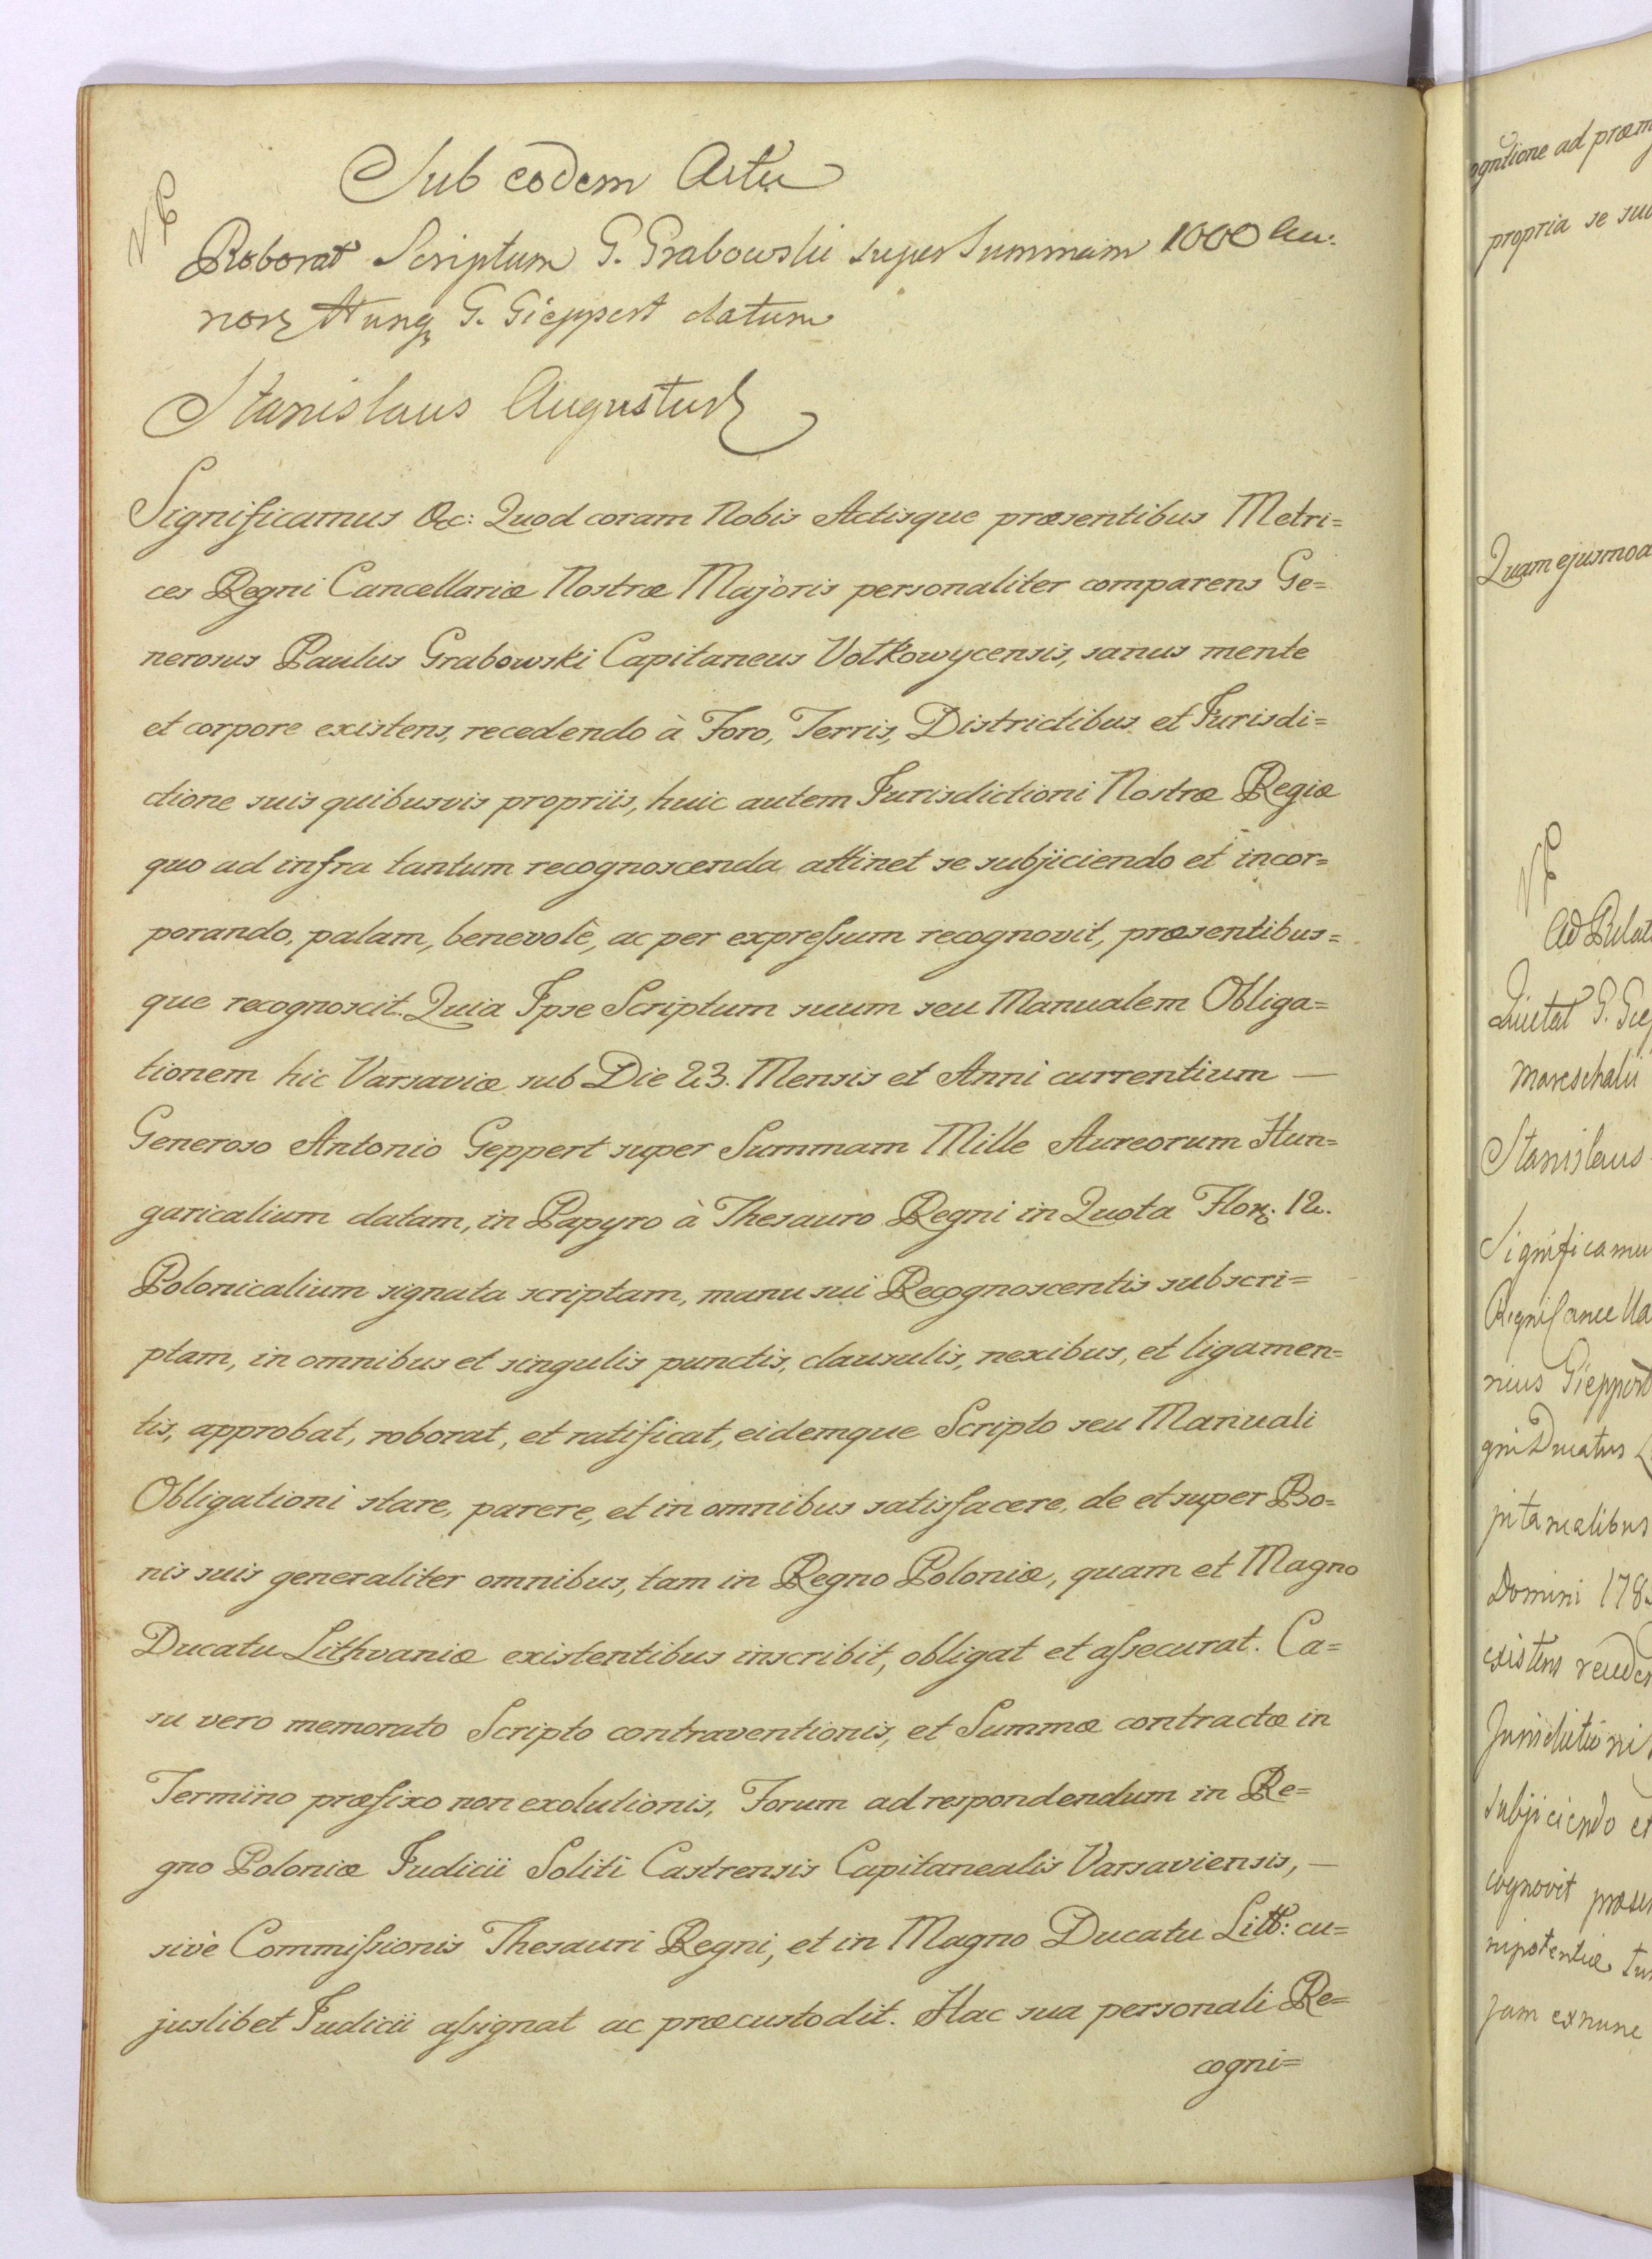 Sub eodem Actu
Roborat Scriptum G. Grabowski super Summam 1000 Au:
Hung G. Gieppert datum
Stanislaus Augustus
Significamus &c: Quod coram Nobis Actisque præsentibus Metri=
ces Regni Cancellariæ Nostræ Majoris personaliter comparens Ge=
nerosus Paulus Grabowski Capitaneus Vołkowycensis, sanus mente
et corpore existens, recedendo à Foro, Terris, Districtibus et Jurisdi=
ctione suis quibusvis propriis, huic autem Jurisdictioni Nostræ Regiæ
quo ad infra tantum recognoscenda attinet se subjiciendo et incor=
porando, palam, benevolè, ac per expreſsum recognovit, præsentibus=
que recognoscit. Quia Ipse Scriptum suum seu Manualem Obliga=
tionem hic Varsaviæ sub Die 23. Mensis et Anni currentium —
Generoso Antonio Geppert super Summam Mille Aureorum Hun=
garicalium datam, in Papyro à Thesauro Regni in Quota Flor: 12.
Polonicalium signata scriptam, manu sui Recognoscentis subscri=
ptam, in omnibus et singulis punctis, clausulis, nexibus, et ligamen=
tis, approbat, roborat, et ratificat, eidemque Scripto seu Manuali
Obligationi stare, parere, et in omnibus satisfacere, de et super Bo=
nis suis generaliter omnibus, tam in Regno Poloniæ, quam et Magno
Ducatu Lithvaniæ existentibus inscribit, obligat et aſsecurat. Ca=
su vero memorato Scripto contraventionis, et Summæ contractæ in
Termino præfixo non exolutionis, Forum ad respondendum in Re=
gno Poloniæ Judicii Soliti Castrensis Capitanealis Varsaviensis, —
sivè Commiſsionis Thesauri Regni, et in Magno Ducatu Litt: cu=
juslibet Judicii aſsignat ac præcustodit. Hac sua personali Re=
cogni=
ad præm
propria se
Quam ejusmod
Ad Relat
Quietat G. Giep
Mareschalii
Stanislaus
Significamu
Regni Cancella
nius Gieppert
gni Ducatus
pitanealibus
Domini 178
existens reced
Jurisdictioni
subjiciendo et
cognovit præse
nipotentiæ
jam exnunc